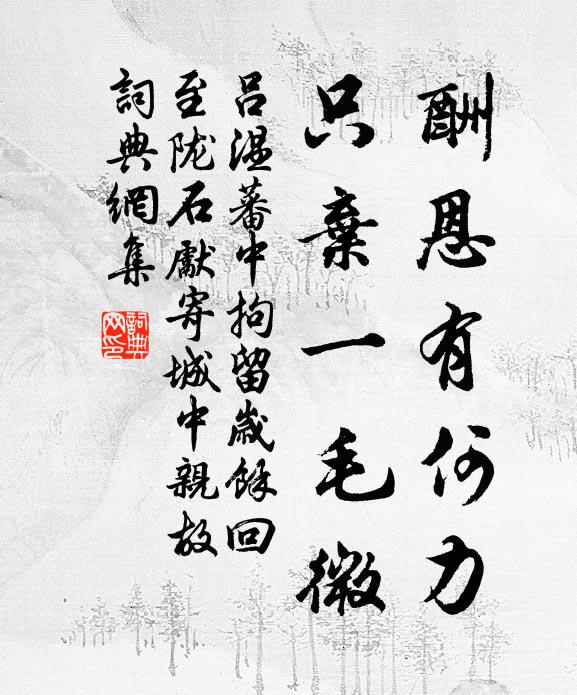 酬恩有何力
只棄一毛微
呂温蕃中拘留歲餘回
至陇石獻寄城中親故
詞典網集
詞典网印